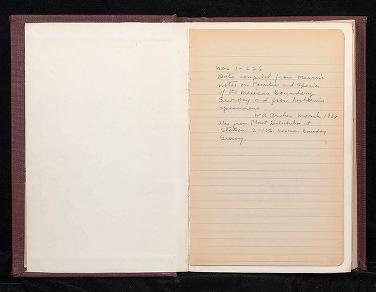 Nos 1-226
Data compiled from Mearns's
notes on Families and species
of the Mexican Boundary
Survey and from herbarium
specimens
W A Archer March 1964
Also from Plant Distribution at
Station 2-102 Mexican Boundary
Survey.